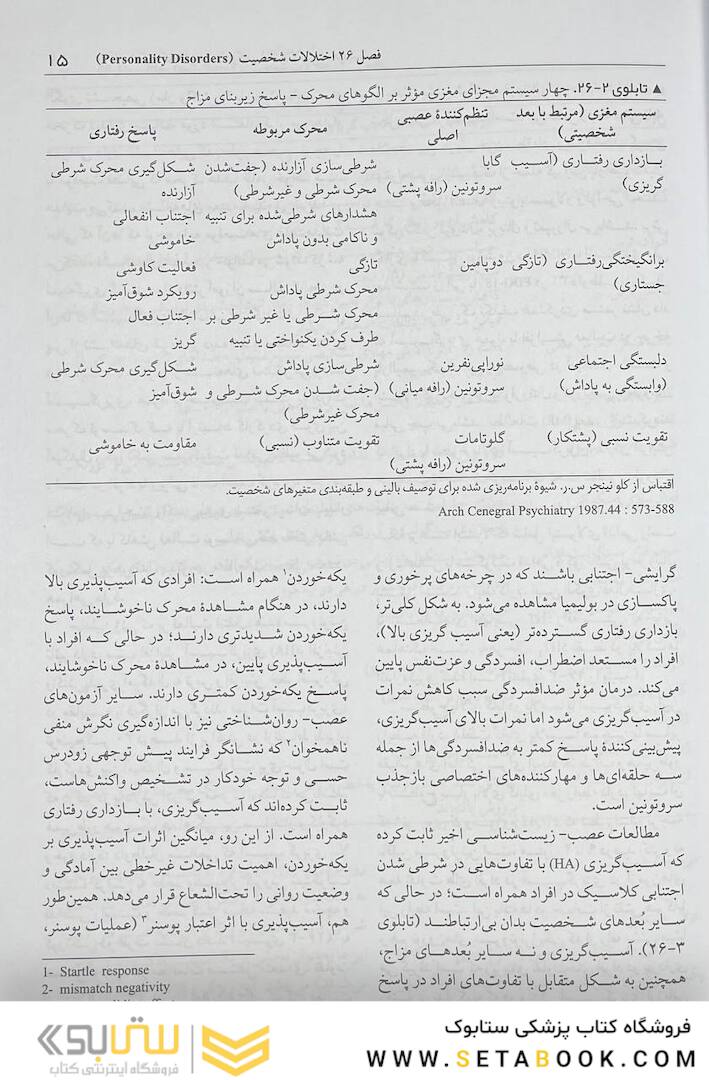 فصل ۲۶ اختلالات شخصیت (Personality Disorders) ۱۵
▲ تابلوی ۲-۲۶. چهار سیستم مجزای مغزی مؤثر بر الگوهای محرک – پاسخ زیربنای مزاج
سیستم مغزی (مرتبط با بعد شخصیتی) تنظم‌کنندهٔ عصبی اصلی محرک مربوطه پاسخ رفتاری
بازداری رفتاری (آسیب گابا شرطی‌سازی آزارنده (جفت‌شدن شکل‌گیری محرک شرطی
گریزی) سروتونین (رافه پشتی) محرک شرطی و غیرشرطی) آزارنده
هشدارهای شرطی‌شده برای تنبیه اجتناب انفعالی
و ناکامی بدون پاداش خاموشی
برانگیختگی‌رفتاری (تازگی دوپامین تازگی فعالیت کاوشی
جستاری) محرک شرطی پاداش رویکرد شوق‌آمیز
محرک شرطی یا غیر شرطی بر اجتناب فعال
طرف کردن یکنواختی یا تنبیه گریز
دلبستگی اجتماعی نوراپی‌نفرین شرطی‌سازی پاداش شکل‌گیری محرک شرطی
(وابستگی به پاداش) سروتونین (رافه میانی) (جفت شدن محرک شرطی و شوق‌آمیز
محرک غیرشرطی)
تقویت نسبی (پشتکار) گلوتامات تقویت متناوب (نسبی) مقاومت به خاموشی
سروتونین (رافه پشتی)
اقتباس از کلو نینجر س.ر. شیوهٔ برنامه‌ریزی شده برای توصیف بالینی و طبقه‌بندی متغیرهای شخصیت.
Arch Cenegral Psychiatry 1987.44 : 573-588
گرایشی- اجتنابی باشند که در چرخه‌های پرخوری و
پاکسازی در بولیمیا مشاهده می‌شود. به شکل کلی‌تر،
بازداری رفتاری گسترده‌تر (یعنی آسیب گریزی بالا)،
افراد را مستعد اضطراب، افسردگی و عزت‌نفس پایین
می‌کند. درمان مؤثر ضدافسردگی سبب کاهش نمرات
در آسیب‌گریزی می‌شود اما نمرات بالای آسیب‌گریزی،
پیش‌بینی‌کنندهٔ پاسخ کمتر به ضدافسردگی‌ها از جمله
سه حلقه‌ای‌ها و مهارکننده‌های اختصاصی بازجذب
سروتونین است.
مطالعات عصب- زیست‌شناسی اخیر ثابت کرده
که آسیب‌گریزی (HA) با تفاوت‌هایی در شرطی شدن
اجتنابی کلاسیک در افراد همراه است؛ در حالی که
سایر بُعدهای شخصیت بدان بی‌ارتباطند (تابلوی
۳-۲۶). آسیب‌گریزی و نه سایر بُعدهای مزاج،
همچنین به شکل متقابل با تفاوت‌های افراد در پاسخ
یکه‌خوردن۱ همراه است: افرادی که آسیب‌پذیری بالا
دارند، در هنگام مشاهدهٔ محرک ناخوشایند، پاسخ
یکه‌خوردن شدیدتری دارند؛ در حالی که افراد با
آسیب‌پذیری پایین، در مشاهدهٔ محرک ناخوشایند،
پاسخ یکه‌خوردن کمتری دارند. سایر آزمون‌های
عصب- روان‌شناختی نیز با اندازه‌گیری نگرش منفی
ناهمخوان۲ که نشانگر فرایند پیش توجهی زودرس
حسی و توجه خودکار در تشخیص واکنش‌هاست،
ثابت کرده‌اند که آسیب‌گریزی، با بازداری رفتاری
همراه است. از این رو، میانگین اثرات آسیب‌پذیری بر
یکه‌خوردن، اهمیت تداخلات غیرخطی بین آمادگی و
وضعیت روانی را تحت‌الشعاع قرار می‌دهد. همین‌طور
هم، آسیب‌پذیری با اثر اعتبار پوسنر۳ (عملیات پوسنر،
1- Startle response
2- mismatch negativity
فروشگاه کتاب پزشکی ستابوک
WWW.SETABOOK.COM
ستابوک
فروشگاه اینترنتی کتاب